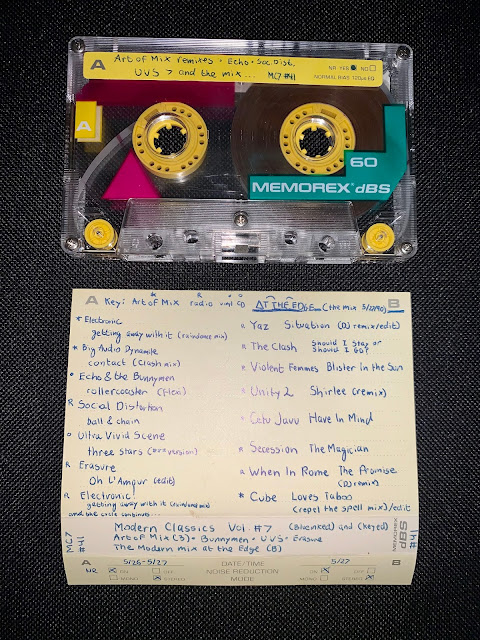 A
Art of Mix remixes • Echo • Soc. Dist.
UVS > and the mix... MC7 #41
NR YES NO
NORMAL BIAS 120µs EQ
A
60
MEMOREX dBS
A Key: Art of Mix * radio R vinyl o CD
* Electronic
getting away with it (raindance mix)
* Big Audio Dynamite
contact (clash mix)
o Echo & the Bunnymen
rollercoaster (flexi)
R Social Distortion
ball & chain
o Ultra Vivid Scene
three stars
R Erasure
Oh L'Amour (edit)
R Electronic
getting away with it (raindance mix)
and the cycle continues...
AT THE EDGE (the mix 5/27/90) B
R Yaz Situation (DJ remix/edit)
R The Clash Should I Stay or
Should I Go?
R Violent Femmes Blister in the Sun
R Unity 2 Shirlee (remix)
R Cetu Javu Have In Mind
R Secession The Magician
R When In Rome The Promise
(DJ remix)
* Cube Loves Taboo
(repel the spell mix)/edit
MC7
#41
Modern Classics Vol. #7 (Blueinked) and (keyed)
Art of Mix (3) • Bunnymen • UVS • Erasure
The Modern mix at the Edge (B)
dBS
MEMOREX
#41
A 5/26-5/27 DATE/TIME 5/27 B
NR ON OFF NOISE REDUCTION ON OFF
MONO STEREO MODE MONO STEREO